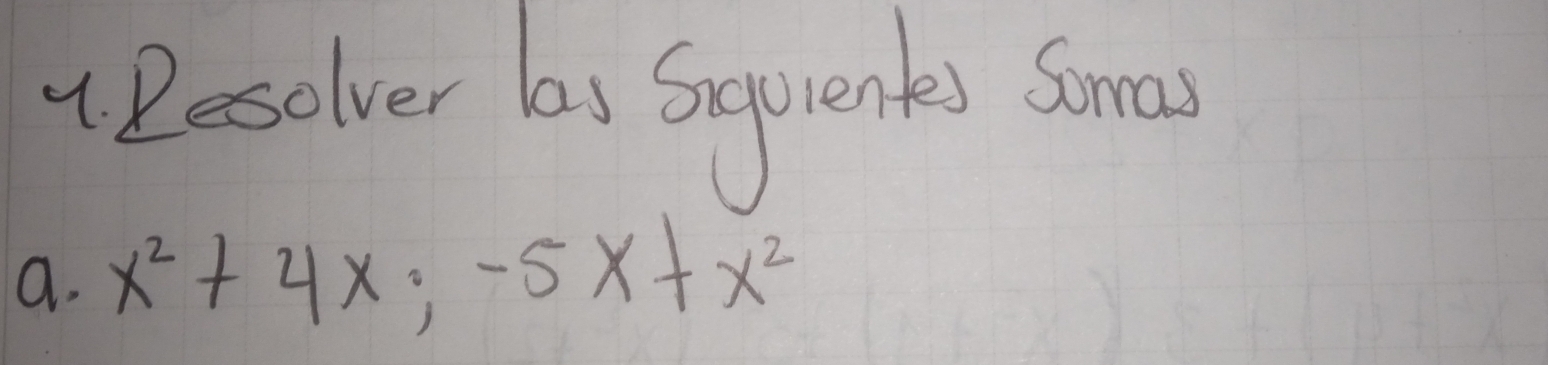 1. Resolver las Siguientes Somas
a. x² + 4x; -5x + x²